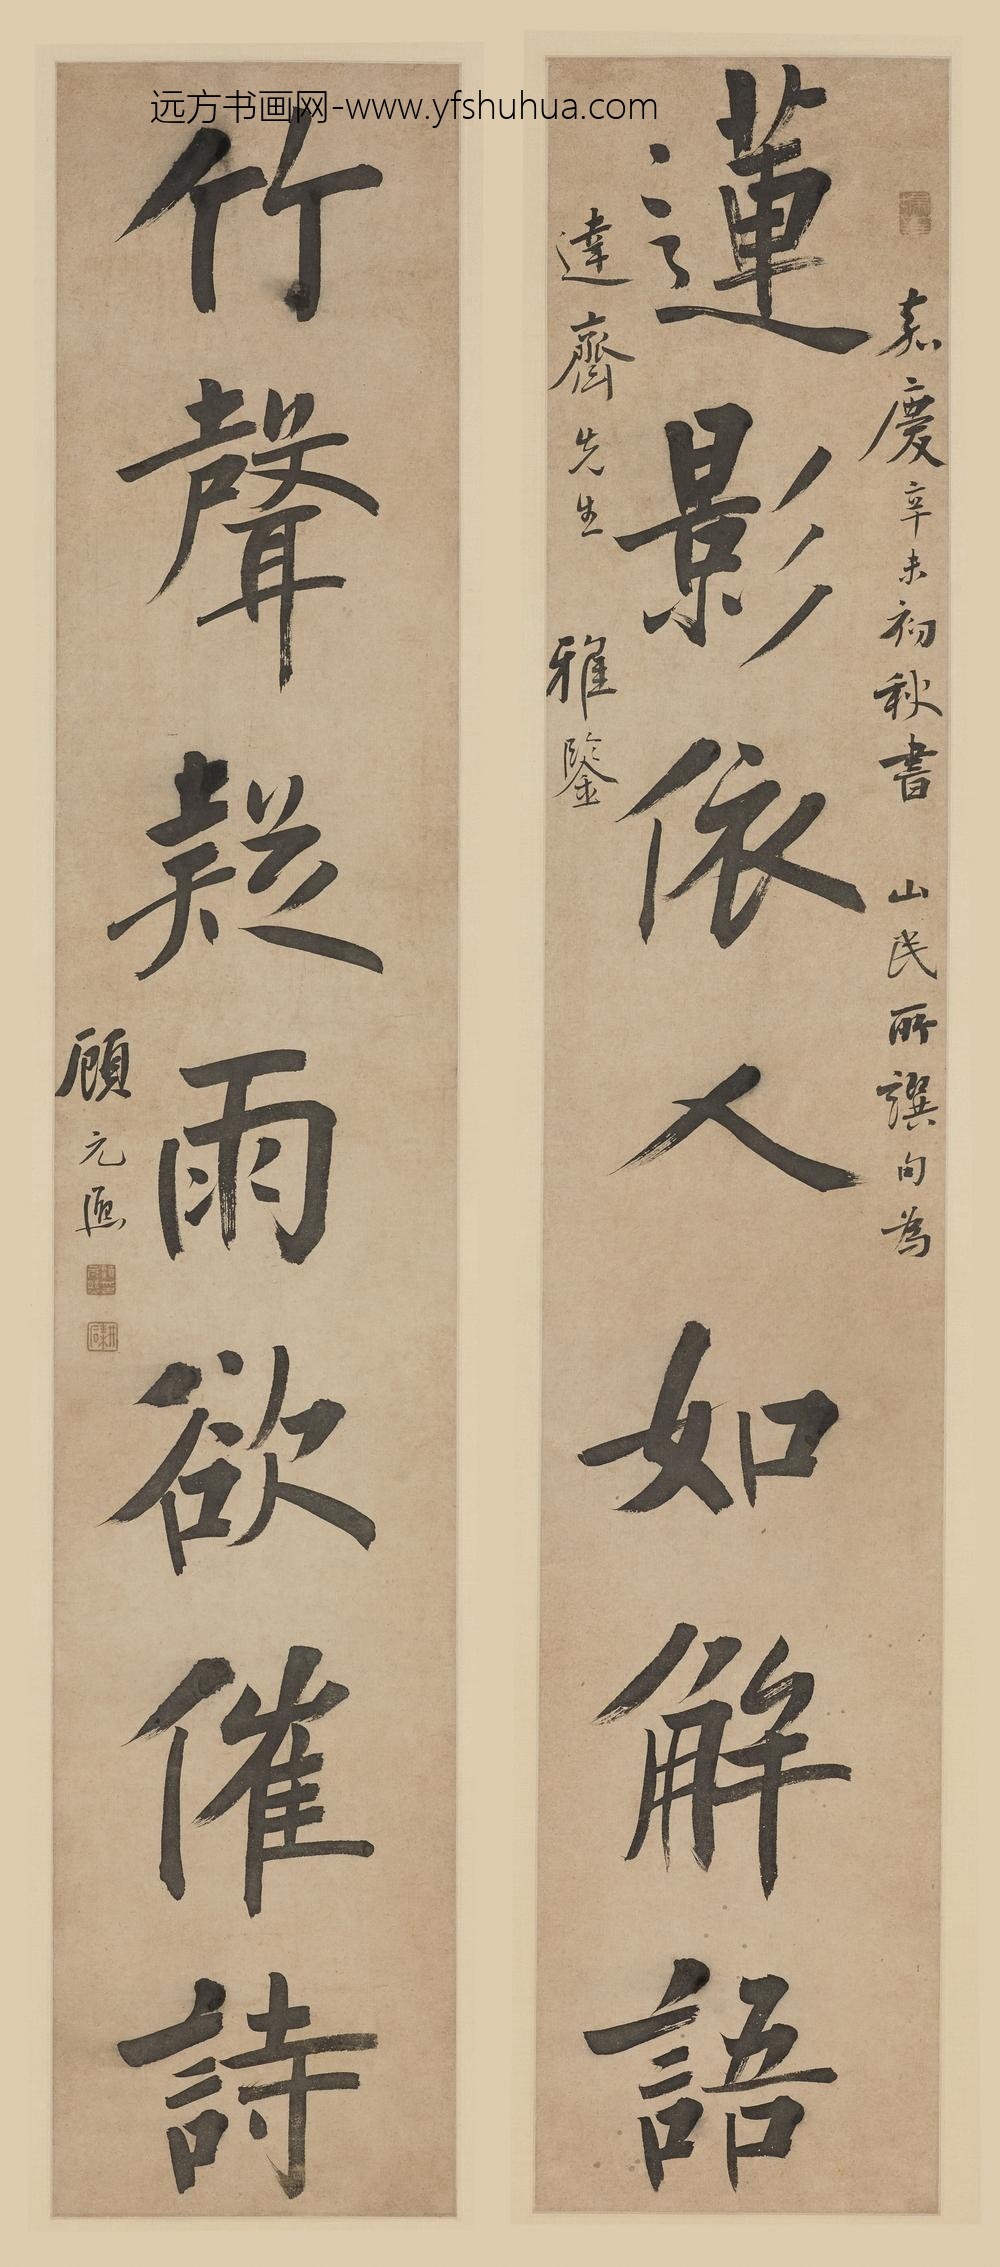 远方书画网-www.yfshuhua.com
嘉慶辛未初秋書 山民所譔句為
蓮影依人如解語
達齋先生 雅鑒
竹聲疑雨欲催詩
顧元熙